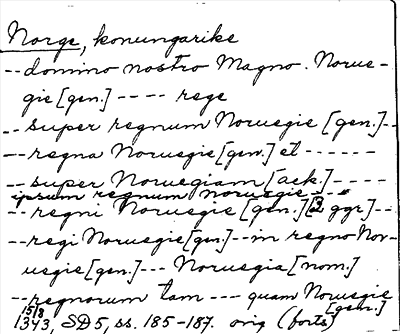 Norge, konungarike
-- domino nostro Magno. Norue-
gie [gen.] ---- rege
-- super regnum Noruegie [gen.] --
-- regna Noruegie [gen.] et ------
-- super Noruegiam [ack.] ----
ipsum regnum noruegie --
-- regni Noruegie [gen.] [3 ggr] --
-- regi Noruegie [gen.] -- in regno Nor-
uegie [gen.] --- Noruegia [nom.]
-- regnorum tam --- quam Noruegie [gen.]
15/8
1343, SD 5, ss. 185-187. orig (forts)